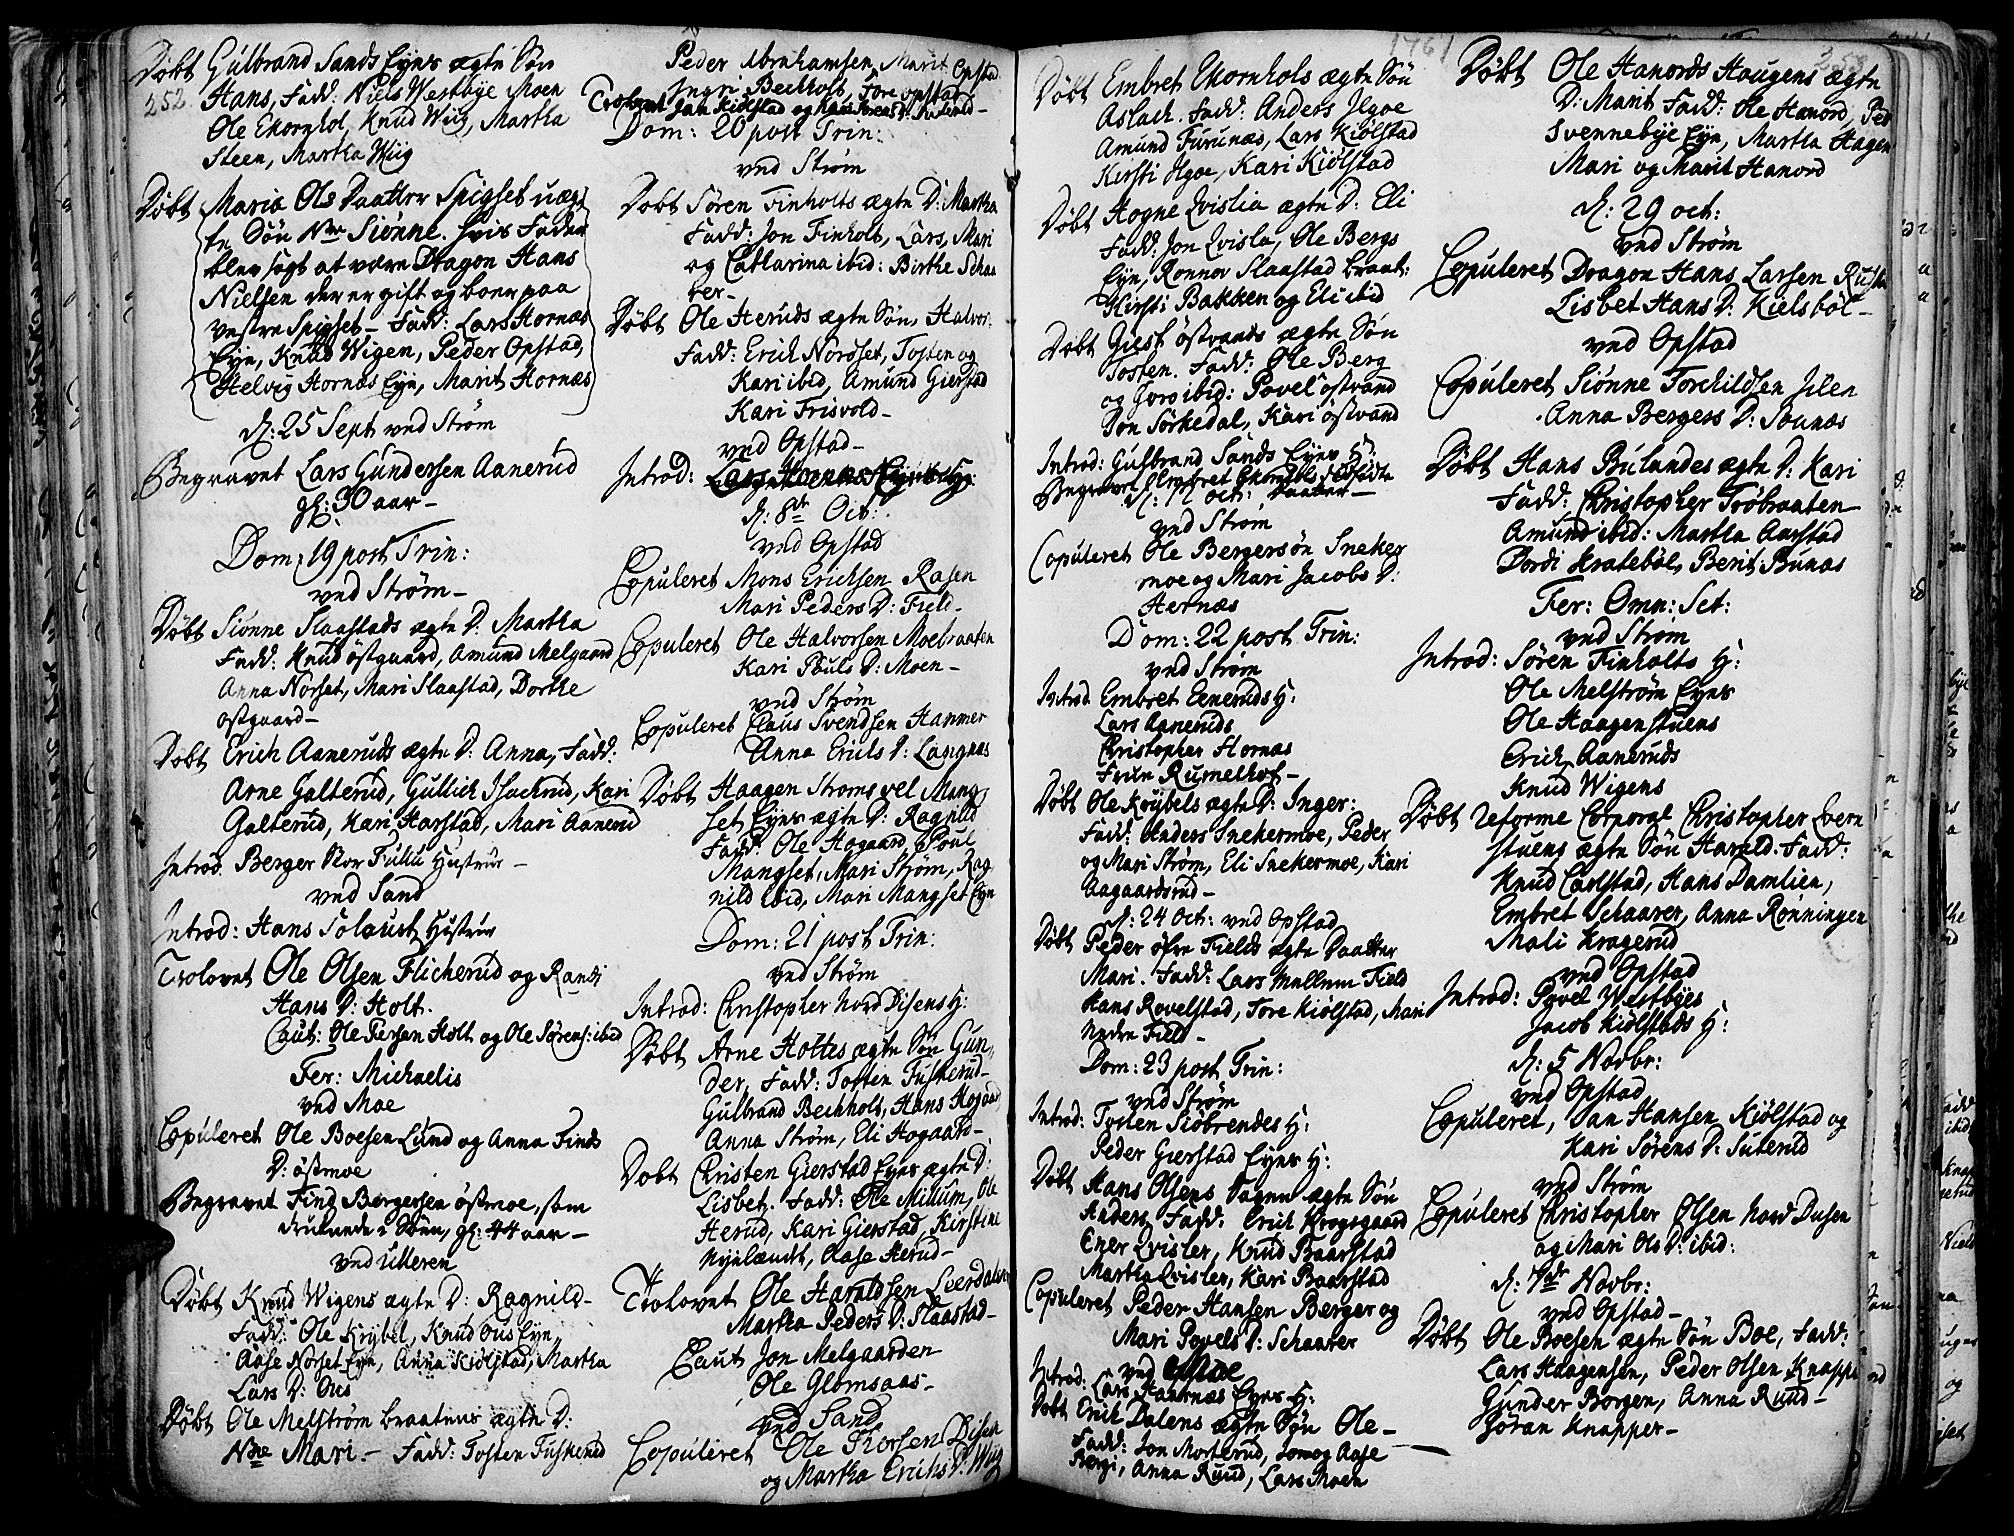 252.
Døbt Gulbrand Sands Eyes ægte Søn
Hans, Fadd: Niels Westbye Moen
Ole Ekornhol, Knud Wiig, Martha
Steen, Martha Wiig
Døbt Maria Ols Daatter Spigset uæg-
te Søn Nne Siønne. hvis Fader
blev sagt at være Dragon Hans
Nielsen der er gift og boer paa
vestre Spigset – Fadd: Lars Hornæs
Eyn, Knud Wigen, Peder Opstad,
Helvig Hornæs Eyn, Marit Hornæs
d: 25 Sept ved Strøm
Begravet Lars Gundersen Aanerud
gl: 30 aar –
Dom: 19 post Trin:
ved Strøm –
Døbt Siønne Slaastads ægte D: Martha
Fadd: Knud østgaard, Amund Melgaard
Anna Norset, Mari Slaastad, Dorthe
østgaard –
Døbt Erich Aaneruds ægte D: Anna, Fadd:
Arne Galterud, Gullich Isachrud, Kari
Galterud, Kari Harstad, Mari Aanerud
Introd: Berger Stor Hustrue –
ved Sand
Introd: Hans Hustrue
Trolovet Ole Olsen Flicherud og Randi
Hans D: Holt.
Caut: Ole Holt og Ole Sørens: ibid
Fer: Michaelis
ved Moe
Copuleret Ole Boesen Lund og Anna Finds
D: østmoe
Begravet Find Bergersen østmoe, som
druknede i gl: 44 aar –
ved Ulleren
Døbt Knud Wigens ægte D: Ragnild –
Fadd: Ole Krybel, Knud Ous Eyn
Aase Norset Eyn, Anna Kiølstad, Martha
Lars D: Ous
Døbt Ole Melstrøm braatens ægte D:
Nne Mari – Fadd: Tosten Fuskerud
Peder Abrahamsen, Marit Opstad
Ingri Bechholt, Tore Opstad
Trolovet Jan Kiølstad og Kari
Dom: 20 post Trin:
ved Strøm
Døbt Søren Finholts ægte D: Martha
Fadd: Jon Finholt, Lars, Mari
og Catharina ibid: Birthe Schaa
rer –
Døbt Ole Heruds ægte Søn, Halvor.
Fadd: Erich Nordset, Tosten og
Kari ibid, Amund Gierstad
Kari Frisvold –
ved Opstad –
Introd: Lars Hornæs Eyes H:
d: 8de Oct:
ved Opstad
Copuleret Mons Erichsen Rasen
Mari Peders D: Field –
Copuleret Ole Halvorsen Moebraaten
Kari Pouls D: Moen –
ved Strøm
Copuleret Claus Svendsen Hammer
Anna Erichs D: Langnæs
Døbt Haagen Strøms vel Mang-
set Eyes ægte D: Ragnild
Fadd: Ole Hogaard, Poul
Mangset, Mari Strøm, Rag
nild ibid, Mari Mangset Eyn
Dom: 21 post Trin:
ved Strøm
Introd: Christopher Nord Disens H:
Døbt Arne Holtes ægte Søn Gun-
der, Fadd: Tosten Fuskerud –
Gulbrand Bechholt, Hans Hogaard
Anna Strøm, Eli Hogaard –
Døbt Christen Gierstad Eyes ægte D:
Lisbet. Fadd: Ole Millum, Ole
Herud, Kari Gierstad, Kirstine
Nylændt, Aase Herud –
Trolovet Ole Haraldsen Leerdalen
Martha Peders D: Slaastad –
Caut Jon Melgaarden
Ole Glomsaas –
ved Sand
Copuleret Ole Disen
og Martha Erichs D: Wiig
1761
Døbt Embret Ekornhols ægte Søn
Aslach. Fadd: Anders Igoe
Amund Furunæs, Lars Kiølstad
Kersti Igoe, Kari Kiølstad
Døbt Hogne Qvislia ægte D: Eli
Fadd: Jon Qvisla, Ole Bergs
Eyn, Ronnov Slaastad braat:
Kirsti Bakken og Eli ibid
Døbt Giest østvands ægte Søn
Tosten. Fadd: Ole Berg
og Goro ibid: Povel østvand
Jon Sørkedal, Kari østvand
Introd: Gulbrand Sands Eyes H:
Begravet Embret dødfødte
d: 12 Oct: Daatter –
ved Strøm
Copuleret Ole Bergersøn Sneker
moe og Mari Jacobs D:
Hernæs
Dom: 22 post Trin:
ved Strøm
Introd Embret Eeneruds H:
Lars Aaneruds
Christopher Hornæs
Rumelhof –
Døbt Ole Krybels ægte D: Inger:
Fadd: Anders Snekermoe, Peder
og Mari Strøm, Eli Snekermoe, Kari
Aagaardsrud –
d: 24 Oct: ved Opstad
Døbt Peder øfre Fields ægte Daatter
Mari. Fadd: Lars Mellum Field
Hans Rovelstad, Tore Kiølstad, Mari
Nedre Field –
Dom: 23 post Trin:
ved Strøm
Introd: Tosten Siøbrendes H:
Peder Gierstad Eyes H:
Døbt Hans Olsens ægte Søn
Anders Fadd: Erich Krogsgaard
Ener Qvisler, Knud Baarstad
Martha Qvisler, Kari Baarstad
Copuleret Peder Hansen Berger og
Mari Povels D: Schaarer
ved
Introd: Lars Haarnæs Eyes H:
Døbt Erich Dalens ægte Søn Ole –
Fadd: Jon Morterud, Jon og Aase
Bergi, Anna Ruud, Lars Moen
253
Døbt Ole Hanords Haugens ægte
D: Marit Fadd: Ole Hanord, Ped
Svennebye Eyn, Martha Hagen
Mari og Marit Hanord
d: 29 oct:
ved Strøm
Copuleret Dragon Hans Larsen
Lisbet Hans D: Kielsbøl –
ved Opstad
Copuleret Siønne Torchildsen
Anna Bergers D: Bunæs
Døbt Hans Bulandes ægte D: Kari
Fadd: Christopher Trøbraaten
Amund ibid: Martha Aarstad
Dordi Kratebøl, Berit Bunæs
Fer: Omn: Set:
ved Strøm
Introd: Søren Finholts H:
Ole Melstrøm Eyes
Ole Haagenstuens
Erich Aaneruds
Knud Wigens
Døbt reforme Corporal Christopher Evern
stuens ægte Søn Harald. Fadd:
Knud Carlstad, Hans Damlien,
Embret Schaarer, Anna Rønningen
Mali Kragerud
ved Opstad
Introd: Povel Westbyes
Jacob Kiølstads H:
d: 5 Novbr:
ved Opstad
Copuleret, Jan Hansen Kiølstad og
Kari Sørens D: Suterud
ved Strøm
Copuleret Christopher Olsen Nord Dusen
og Mari Ols D: ibid:
d: 7de Novbr:
ved Opstad –
Døbt Ole Boesen ægte Søn Boe, Fadd:
Lars Haagensen, Peder Olsen Knappe
Gunder Borgen, Anna Ruud –
Gøran Knapper –